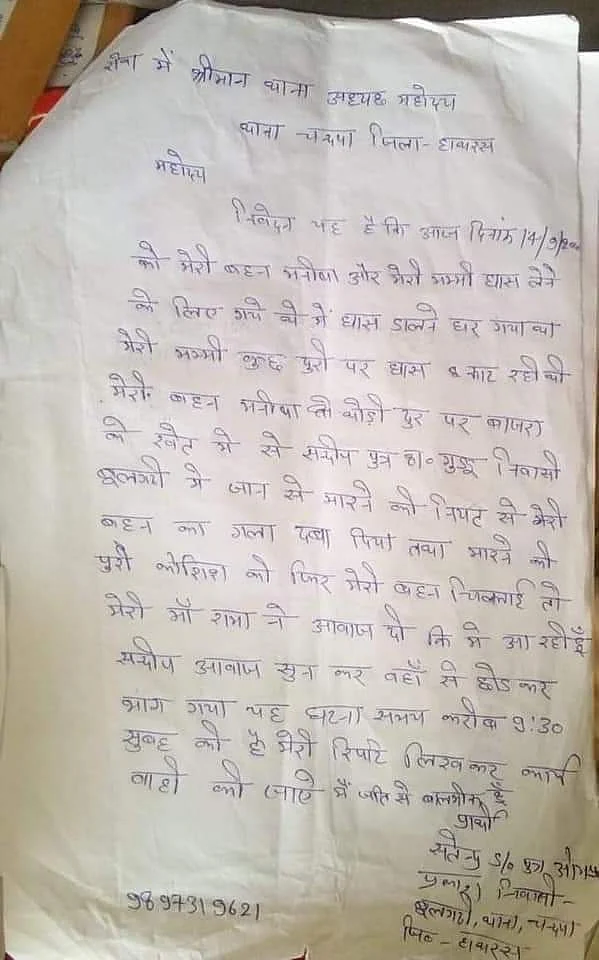 सेवा में श्रीमान थाना अध्यछ महोदय
थाना चन्दपा जिला- हाथरस
महोदय
निवेदन यह है कि आज दिनांक 14/9/20
को मेरी बहन मनीषा और मेरी मम्मी घास लेने
के लिए गये थे में घास डालने घर गया था
मेरी मम्मी कुछ दुरी पर घास काट रही थी
मेरी बहन मनीषा थोड़ी दुर पर बाजरा
के खेट मे से सन्दीप पुत्र गुड्डू निवासी
बूलगढी मे जान से मारने की नियट से मेरी
बहन का गला दबा दिया तथा मारने की
पुरी कोशिश की फिर मेरी बहन चिल्लाई तो
मेरी माँ रामा ने आवाज दी कि मे आ रही हूँ
सन्दीप आवाज सुन कर वहाँ से छोड कर
भाग गया यह घटना समय करीब 9:30
सुबह की है मेरी रिर्पाट लिखकर कार्य
वाही की जाऐ मैं जाति से बालमीक हूँ
प्रार्थी
सतेन्द्र S/o पुत्र ओम
प्रकाश निवासी-
बूलगढी, थाना, चन्दपा
जि०- हाथरस
9897319621